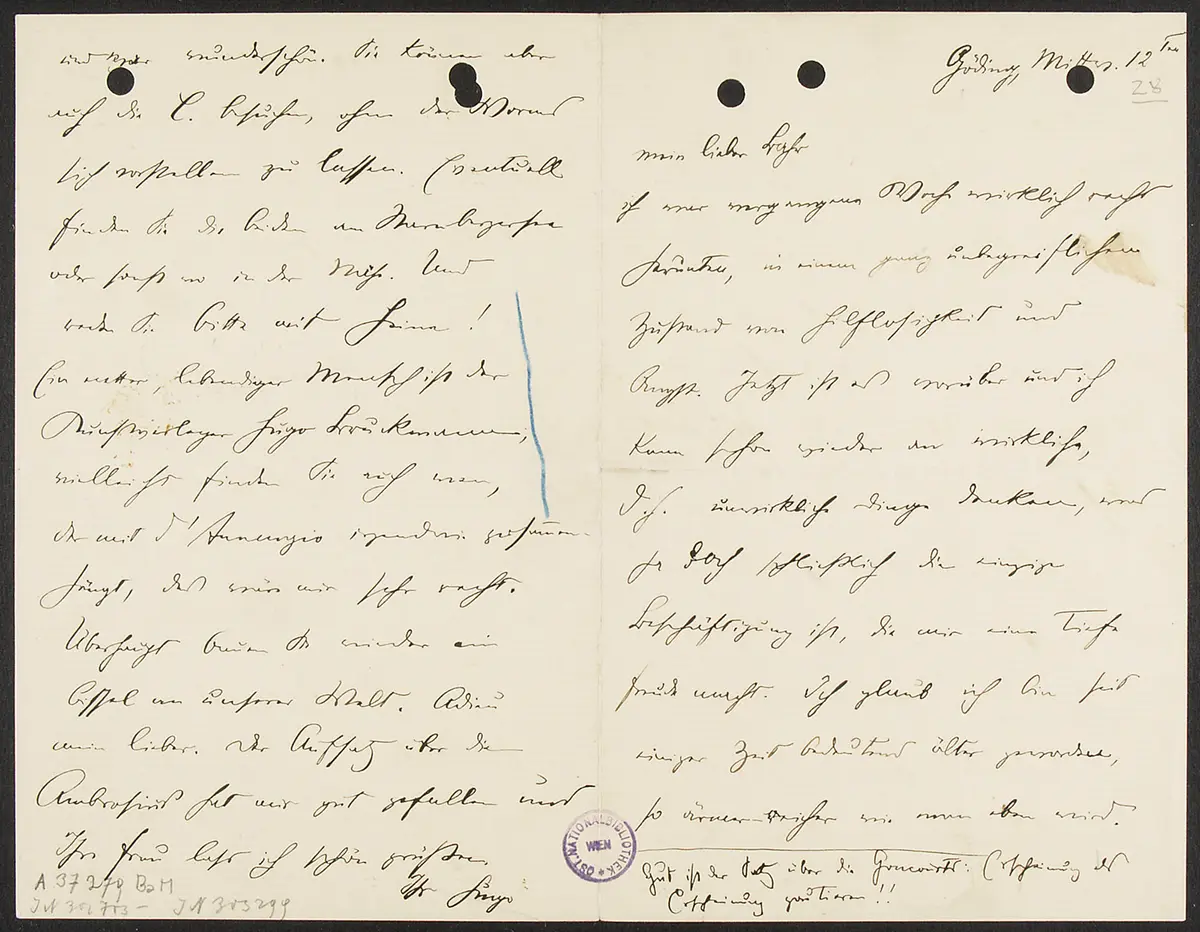 Göding, Mittw. 12ten
28
mein lieber Bahr
ich war vergangene Woche wirklich recht
herunten, in einem ganz unbegreiflichen
Zustand von Hilflosigkeit und
Angst. Jetzt ist es vorüber und ich
kann schon wieder an wirkliche,
d.h. unwirkliche Dinge denken, was
ja doch schließlich die einzige
Beschäftigung ist, die mir eine tiefe
Freude macht. Ich glaub ich bin seit
einiger Zeit bedeutend älter geworden,
so ärmer-reicher wie man eben wird.
Gut ist der Satz über die Goncourts: Erscheinung als
Erscheinung goutieren!!
sind wunderschön. Sie können aber
auch die C. besuchen, ohne der Worms
sich vorstellen zu lassen. Eventuell
finden Sie die beiden am Starnbergersee
oder sonst wo in der Nähe. Und
reden Sie bitte mit Heine!
Ein netter, lebendiger Mensch ist der
Kunstverleger Hugo Bruckmann,
vielleicht finden Sie auch wen,
der mit d'Annunzio irgendwie zusammen-
hängt, das wäre mir sehr recht.
Überhaupt bauen Sie wieder ein
bissel an unserer Welt. Adieu
mein lieber. Der Aufsatz über die
Ambrosius hat mir gut gefallen und
Ihre Frau lass ich schön grüßen.
Ihr Hugo
A 37279 BaM
ÖST. NATIONALBIBLIOTHEK
WIEN